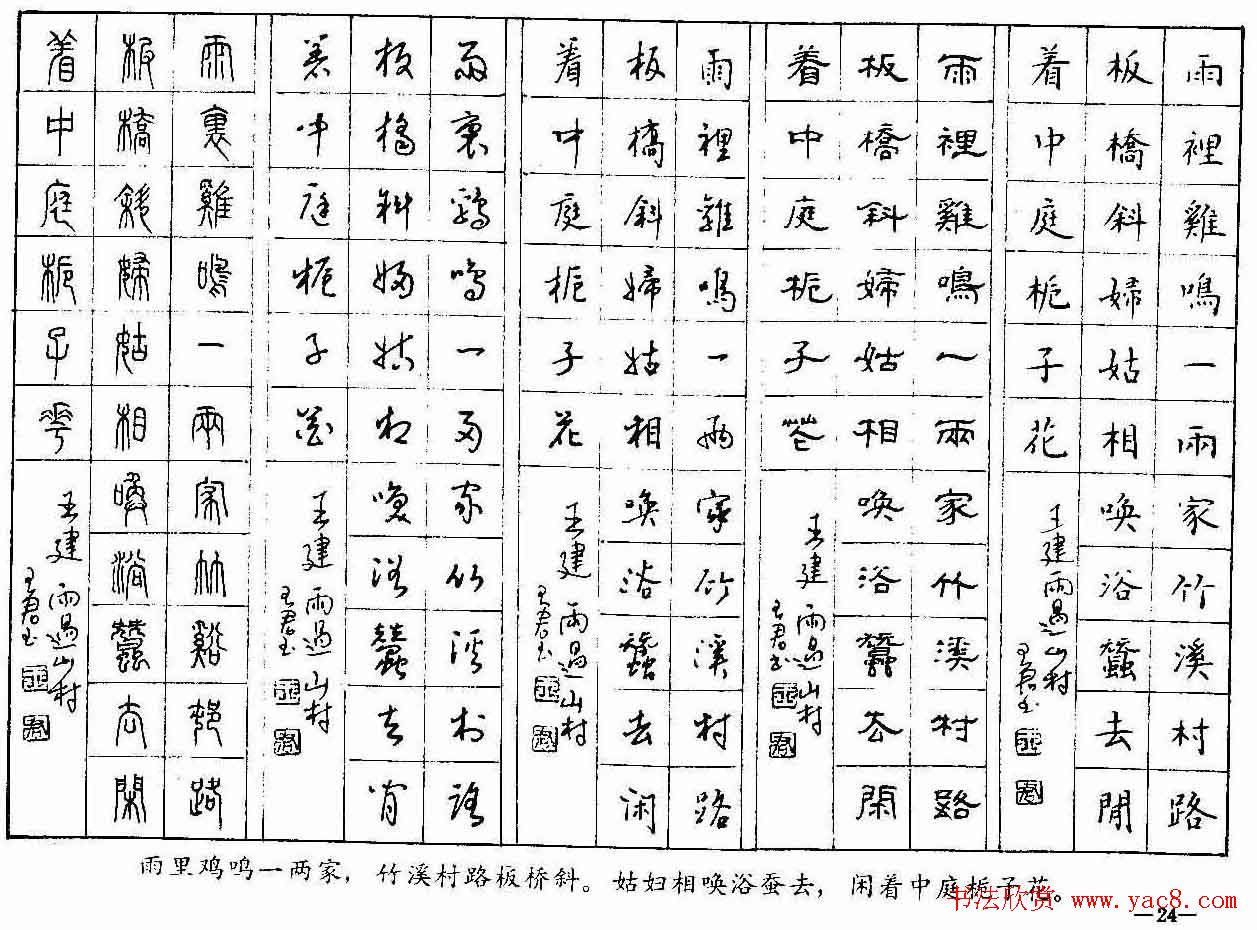 雨裡雞鳴一兩家竹溪村路
板橋斜婦姑相喚浴蠶去閒
着中庭梔子花
王建雨過山村
雨裡雞鳴一兩家竹溪村路
板橋斜婦姑相喚浴蠶去閑
着中庭梔子花
王建雨過山村
雨裡雞鳴一兩家竹溪村路
板橋斜婦姑相喚浴蠶去闲
着中庭梔子花
王建雨過山村
雨裏鷄鳴一兩家竹溪村路
板橋斜婦姑相喚浴蠶去闲
着中庭梔子花
王建雨過山村
雨裏雞鳴一兩家竹谿邨路
板橋斜婦姑相喚浴蠶去閑
着中庭梔子華
王建雨過山村
雨里鸡鸣一两家，竹溪村路板桥斜。姑妇相唤浴蚕去，闲着中庭栀子花。
书法欣赏 www.yac8.com
—24—